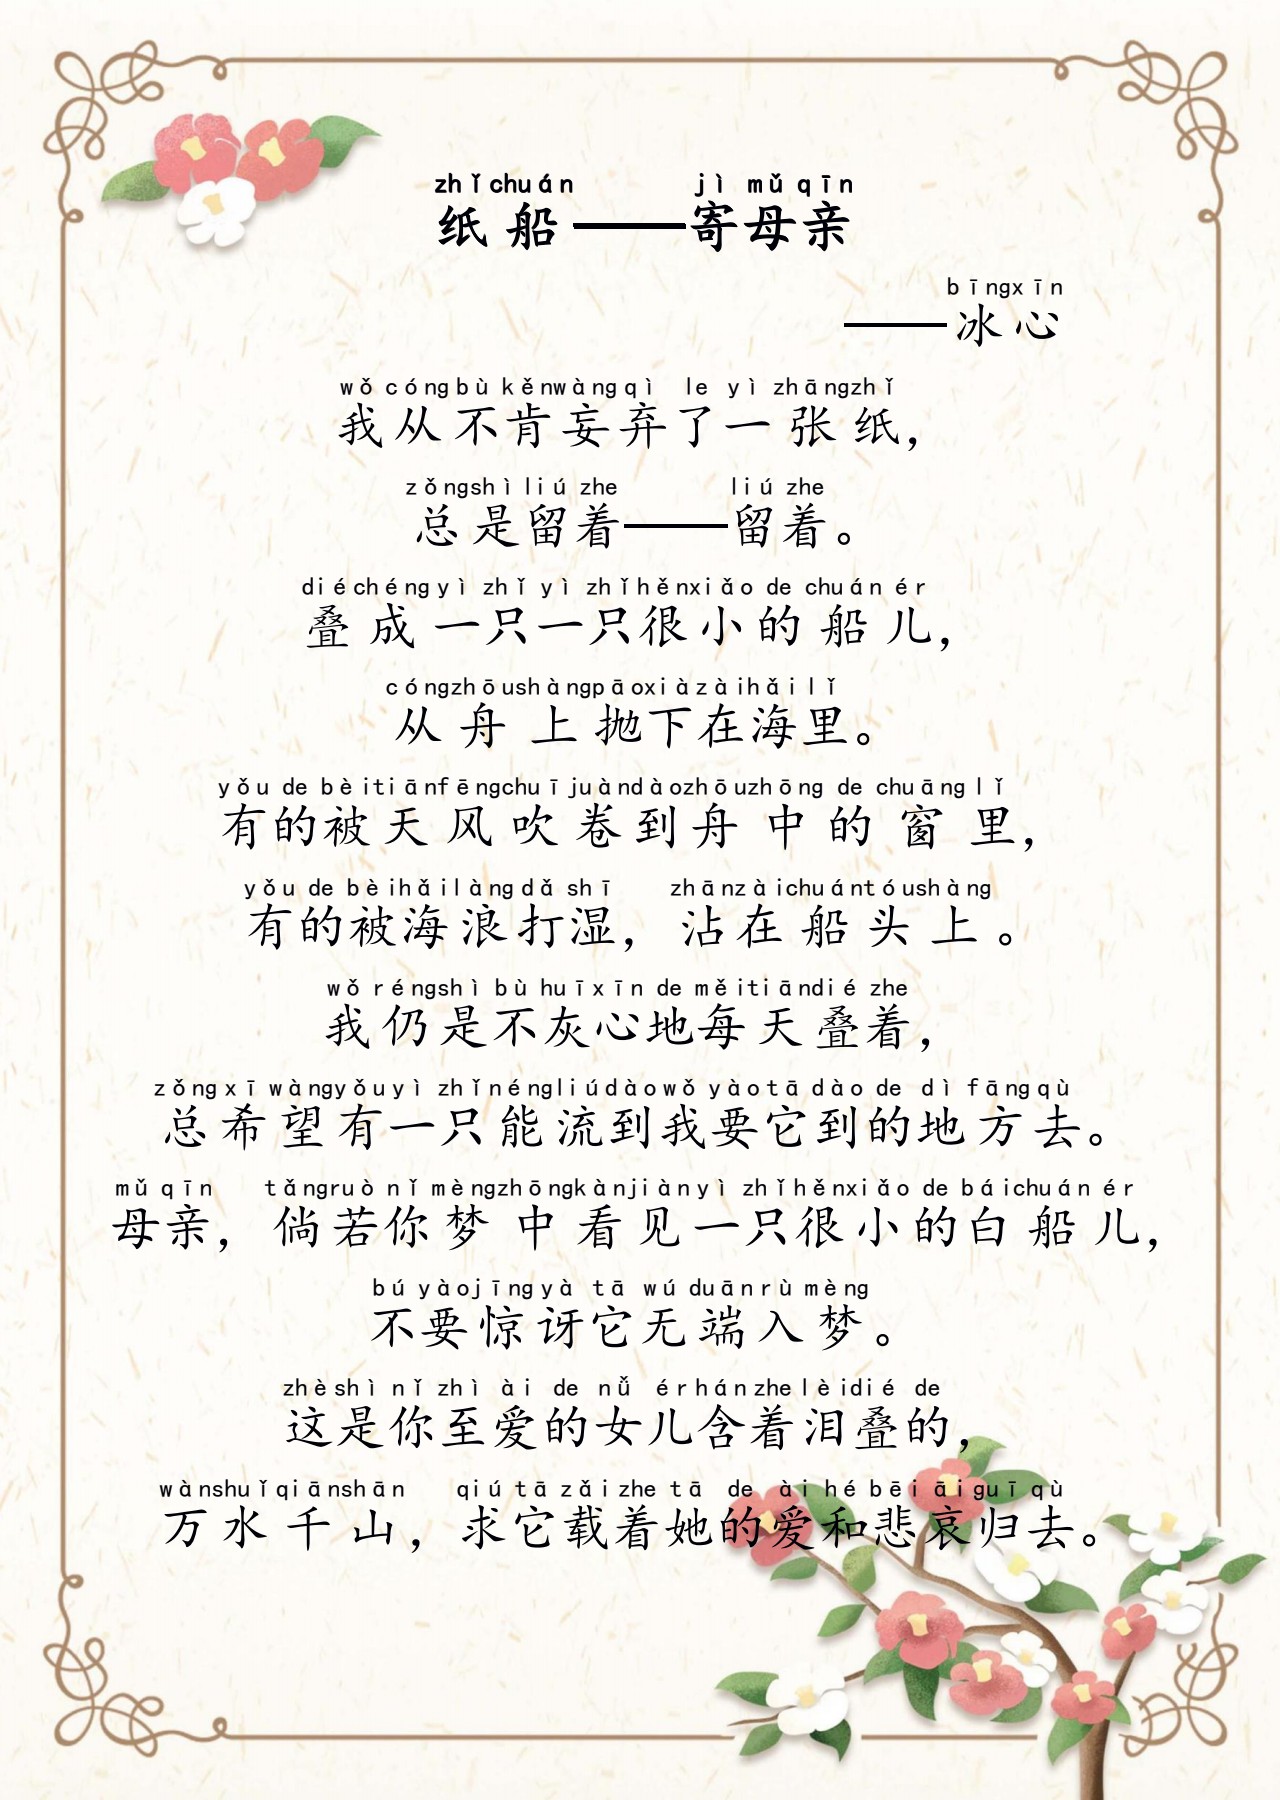 zhǐchuán jì mǔqīn
纸船——寄母亲
bīngxīn
——冰心
wǒ cóngbù kěnwàngqì le yì zhāngzhǐ
我从不肯妄弃了一张纸，
zǒngshìliú zhe liú zhe
总是留着——留着。
diéchéngyì zhǐ yì zhǐhěnxiǎo de chuán ér
叠成一只一只很小的船儿，
cóngzhōushàngpāoxiàzàihǎilǐ
从舟上抛下在海里。
yǒu de bèitiānfēngchuījuàndàozhōuzhōng de chuānglǐ
有的被天风吹卷到舟中的窗里，
yǒu de bèihǎilàngdǎ shī zhānzàichuántóushàng
有的被海浪打湿，沾在船头上。
wǒ réngshì bù huīxīn de měitiāndié zhe
我仍是不灰心地每天叠着，
zǒngxīwàngyǒuyì zhǐnéngliúdàowǒ yàotā dào de dì fāngqù
总希望有一只能流到我要它到的地方去。
mǔ qīn tǎngruò nǐ mèngzhōngkànjiànyì zhǐhěnxiǎo de báichuán ér
母亲，倘若你梦中看见一只很小的白船儿，
bú yàojīngyà tā wú duānrù mèng
不要惊讶它无端入梦。
zhèshì nǐ zhì ài de nǚ érhánzhelèidié de
这是你至爱的女儿含着泪叠的，
wànshuǐqiānshān qiú tā zǎizhe tā de ài hé bēi āiguī qù
万水千山，求它载着她的爱和悲哀归去。